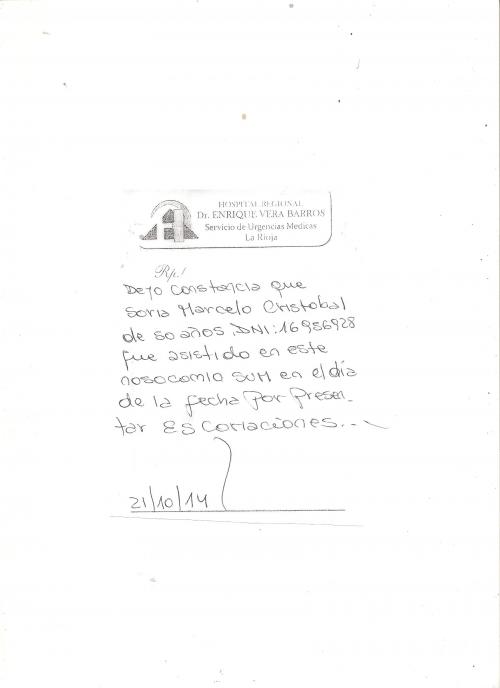 HOSPITAL REGIONAL
Dr. ENRIQUE VERA BARROS
Servicio de Urgencias Medicas
La Rioja
Rp.!
Dejo constancia que
Soria Marcelo Cristobal
de 50 años, DNI: 16956928
fue asistido en este
nosocomio SUM en el día
de la fecha por presen-
tar Escoriaciones...
21/10/14